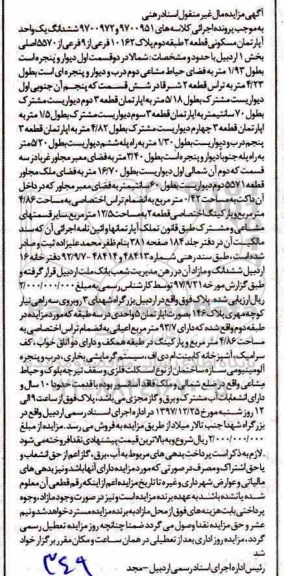 آگهی مزایده مال غیر منقول اسناد رهنی
به موجب پرونده اجرائی کلاسه های ۹۷۰۰۹۵۱ و ۹۷۰۰۹۷۲ ششدانگ یک واحد
آپارتمان مسکونی قطعه ۲ طبقه دوم پلاک ۱۰۱۶۲ فرعی از ۹ فرعی از ۵۵۷۰ اصلی
بخش ۱ اردبیل با حدود و مشخصات: شمالا در دو قسمت اول دیوار و پنجره است
بطول ۱/۹۳ متر به فضای حیاط مشاعی دوم درب و دیوار و پنجره ای است بطول
۴/۲۳ متر به تراس قطعه ۲ شرقا در شش قسمت که پنجم آن جنوبی اول
دیواریست مشترک بطول ۵/۱۸ متر به اپارتمان قطعه ۳ دوم دیواریست مشترک
بطول ۷۰ سانتیمتر به اپارتمان قطعه ۳ سوم دیواریست مشترک بطول ۱/۵ متر به
اپارتمان قطعه ۳ چهارم دیواریست مشترک بطول ۴/۸۲ متر به اپارتمان قطعه ۳
پنجم درب و دیواریست بطول ۱/۳۰ متر به راه پله ششم دیواریست بطول ۵/۲۰ متر
به راه پله جنوبا دیوار و پنجره است بطول ۳/۴۰ متر به فضای معبر مجاور غربا در سه
قسمت که دوم آن شمالی اول دیواریست بطول ۱۶/۷۰ متر به فضای ملک مجاور
قطعه ۵۵۷۱ دوم دیواریست بطول ۶۰ سانتیمتر به فضای معبر مجاور که در داخل
آن داکت به مساحت ۰/۴۲ متر مربع به انضمام تراس اختصاصی به مساحت ۴/۸۶
متر مربع و پارکینگ اختصاصی قطعه ۲ به مساحت ۱۲/۵ متر مربع سایر قسمتهای
مشاعی و مشترک طبق قانون تملک آپارتمانها و ائین نامه اجرائی آن که سند
مالکیت آن در دفتر جلد ۱۸۴ صفحه ۳۸۱ بنام ظفر محمد علیزاده ثبت و صادر
شده است، طبق سند رهنی شماره ۴۸۴۱۳ و ۴۸۴۱۴- ۹۲/۹/۷ دفترخانه ۱۶
اردبیل ششدانگ و مازاد آن در رهن مدیریت شعب بانک ملت اردبیل قرار گرفته و
طبق گزارش مورخه ۹۷/۹/۲۱ توسط کارشناس رسمی به مبلغ ۲/۰۰۰/۰۰۰/۰۰۰
ریال ارزیابی شده. پلاک فوق واقع در اردبیل بزرگراه شهدای ۲ روبروی سه راهی نیار
کوچه مهری پلاک ۱۴۶ بصورت آپارتمان ۵ واحدی در سه طبقه که مورد مزایده در
طبقه دوم واقع شده که دارای ۹۲/۷ متر مربع اعیانی به انضمام تراس اختصاصی به
مساحت ۴/۸۶ متر مربع و پارکینگ در طبقه همکف و دارای دو اتاق خواب، کف
سرامیک، آشپزخانه کابینت ام دی اف، سیستم گرمایشی بخاری، درب و پنجره
آلومینیومی سازه ساختمان از نوع اسکلت فلزی و سقف تیرچه بلوک و حیاط
مشاعی واقع در ضلع شمالی و ملک فاقد آسانسور بوده با قدمت حدود ۱۰ سال و
دارای انشعابات آب مشترک و برق و گاز مجزی می باشد، پلاک فوق از ساعت ۹ الی
۱۲ روز شنبه مورخ ۱۳۹۷/۱۲/۲۵ در اداره اجرای اسناد رسمی اردبیل واقع در
بزرگراه شهدا جنب تالار میلاد از طریق مزایده به فروش می رسد. مزایده از مبلغ
۲/۰۰۰/۰۰۰/۰۰۰ ریال شروع و به بالاترین قیمت پیشنهادی نقدا فروخته می شود
لازم به ذکر است پرداخت بدهی های مربوط به آب، برق، گاز اعم از حق انشعاب و
یا حق اشتراک و مصرف در صورتی که مورد مزایده دارای آنها باشد و نیز بدهی های
مالیاتی و عوارض شهرداری و غیره تا تاریخ مزایده اعم از اینکه رقم قطعی آن معلوم
شده یا نشده باشد به عهده برنده مزایده است و نیز در صورت وجود مازاد، وجوه
پرداختی بابت هزینه های فوق از محل مازاد به برنده مزایده مسترد خواهد شد و نیم
عشر و حق مزایده نقدا وصول می گردد ضمنا چنانچه روز مزایده تعطیل رسمی
گردد، مزایده روز اداری بعد از تعطیلی در همان ساعت و مکان مقرر برگزار خواهد
شد
رئیس اداره اجرای اسناد رسمی اردبیل - مجد
۳۶۹